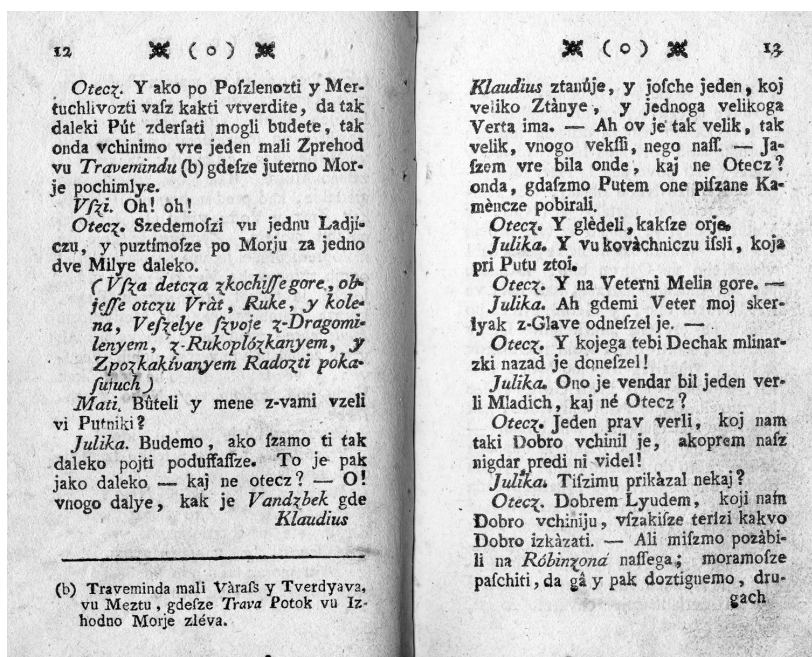 12 ( o )
Otecz. Y ako po Poſzlenozti y Mer-
tuchlivozti vaſz kakti vtverdite, da tak
daleki Pút zderſati mogli budete, tak
onda vchinimo vre jeden mali Zprehod
vu Travemindu (b) gdeſze juterno Mor-
je pochimlye.
Vſzi. Oh! oh!
Otecz. Szedemoſzi vu jednu Ladjí-
czu, y puztímoſze po Morju za jedno
dve Milye daleko.
(Vſza detcza zkochiſſe gore, ob-
jeſſe otczu Vràt, Ruke, y kole-
na, Veſzelye ſzvoje z-Dragomi-
lenyem, z-Rukoplózkanyem, y
Zpozkakivanyem Radozti poka-
ſujuch)
Mati. Bûteli y mene z-vami vzeli
vi Putniki?
Julika. Budemo, ako ſzamo ti tak
daleko pojti poduffaſſze. To je pak
jako daleko — kaj ne otecz? — O!
vnogo dalye, kak je Vandzbek gde
Klaudius
(b) Traveminda mali Vàraſs y Tverdyava,
vu Meztu, gdeſze Trava Potok vu Iz-
hodno Morje zléva.
( o ) 13
Klaudius ztanúje, y joſche jeden, koj
veliko Ztànye, y jednoga velikoga
Verta ima. — Ah ov je tak velik, tak
velik, vnogo vekſſi, nego naſſ. — Ja-
ſzem vre bila onde, kaj ne Otecz?
onda, gdaſzmo Putem one piſzane Ka-
mèncze pobirali.
Otecz. Y glèdeli, kakſze orje.
Julika. Y vu kovàchniczu iſsli, koja
pri Putu ztoi.
Otecz. Y na Veterni Melin gore. —
Julika. Ah gdemi Veter moj sker-
lyak z-Glave odneſzel je. —
Otecz. Y kojega tebi Dechak mlinar-
zki nazad je doneſzel!
Julika. Ono je vendar bil jeden ver-
li Mladich, kaj né Otecz?
Otecz. Jeden prav verli, koj nam
taki Dobro vchinil je, akoprem naſz
nigdar predi ni videl!
Julika. Tiſzimu prikàzal nekaj?
Otecz. Dobrem Lyudem, koji nam
Dobro vchiniju, vſzakiſze terſzi kakvo
Dobro izkàzati. — Ali miſzmo pozàbi-
li na Róbinzoná naſſega; moramoſze
paſchiti, da gâ y pak doztignemo, dru-
gach